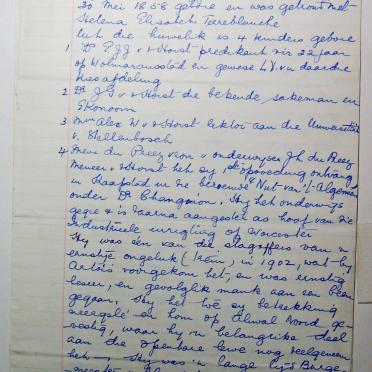 20 Mei 1858 gebore en was getroud met
Helena Elisabeth Terreblanche
Uit die huwelik is 4 kinders gebore
1 Dr P.J.J v. d. Horst predikant vir 22 jaar
of Wolmaransstad en gewese L.V. v. daardie
kiesafdeling
2 Dr J G v d Horst die bekende sakeman en
Ekonoom
3 Mnr Alex W v d Horst lektor aan die Universiteit
v. Stellenbosch
4 Mevr du Preez vrou v onderwyser Jh du Preez
Meneer v d Horst het sy opvoeding ontvang
in Kaapstad in die beroemde "Nut van 't Algemeen"
onder Dr Changuion. Hy het onderwys
gegee & is daarna aangestel as hoof van die
Industriele inrigting of Worcester
Hy was een van die slagoffers van 'n
ernstige ongeluk (trein) in 1902, wat by
Artois voorgekom het, en was ernstig
beseer, en gevolglik mank aan een been
gegaan. Hy het toe sy betrekking
neergelê en hom op Aliwal Noord
gevestig, waar hy 'n belangrike deel
aan die openbare lewe nog deelgeneem
het. Hy was 'n lange tyd Burge-